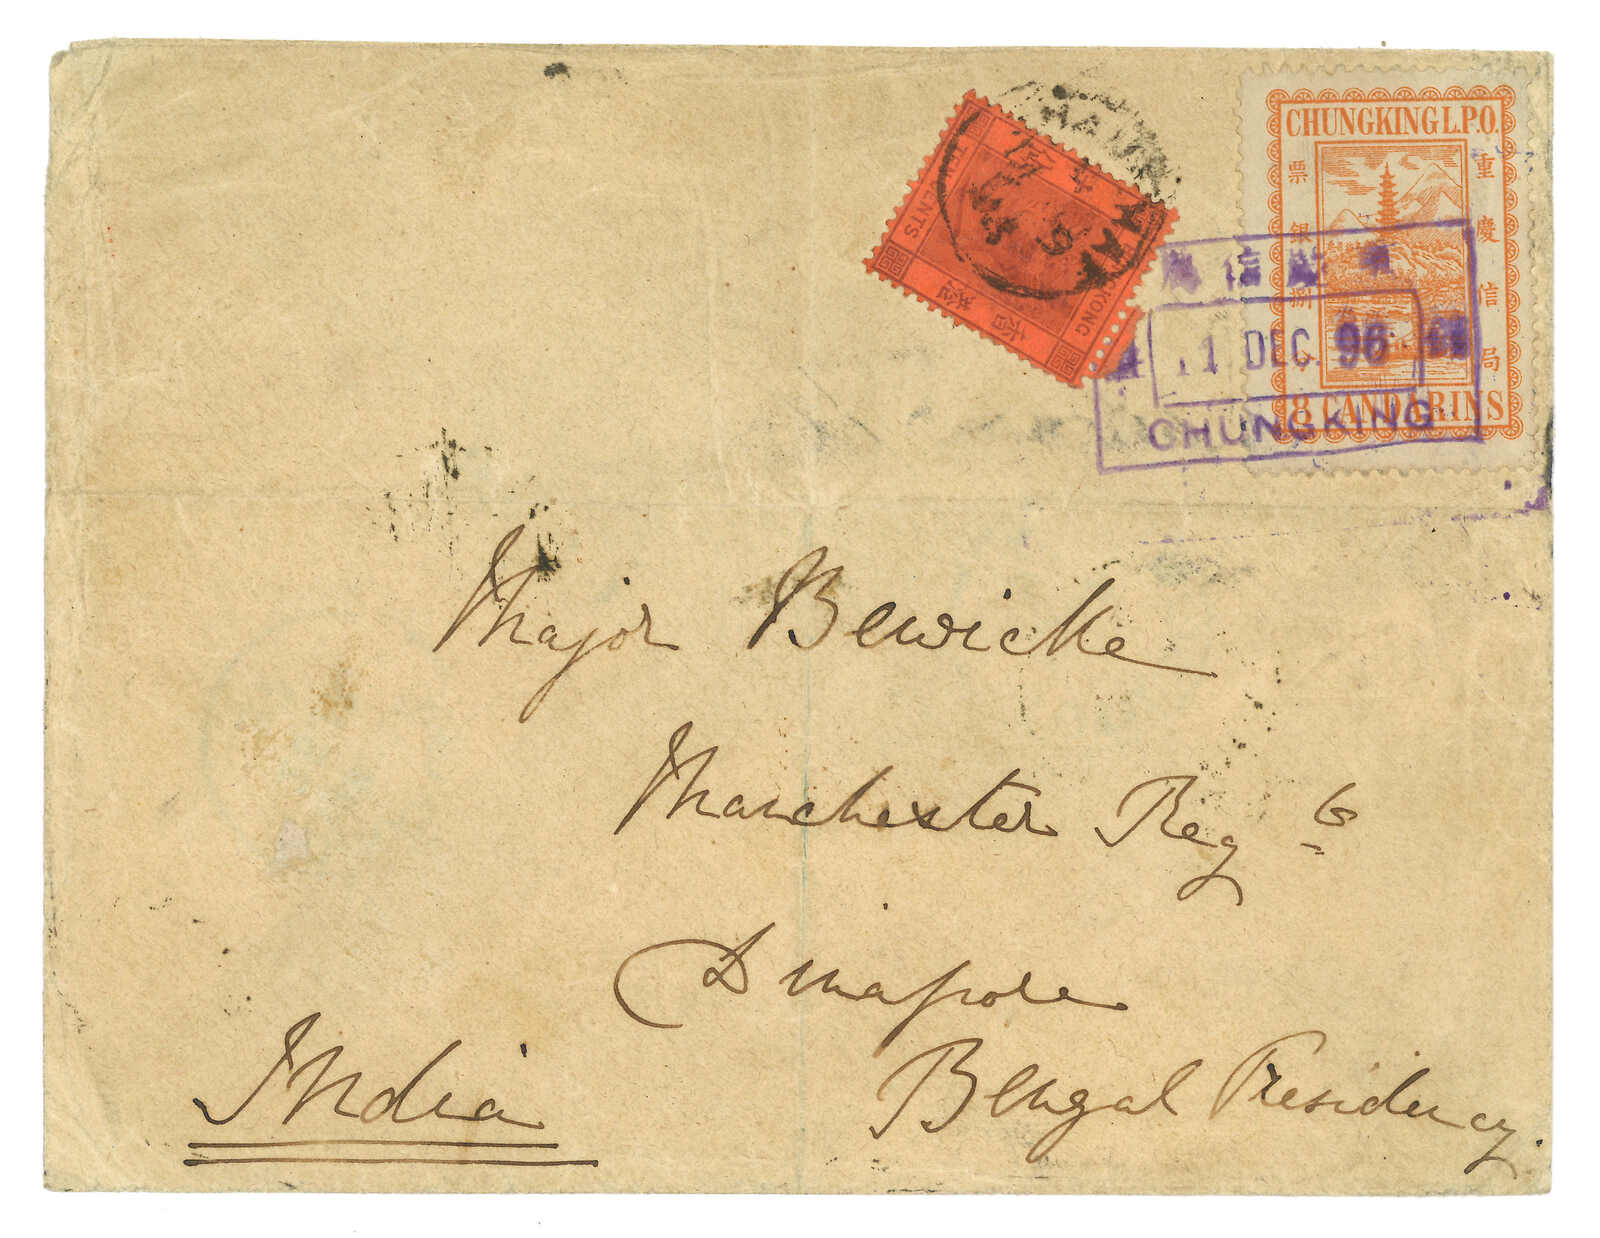 CHUNGKING L.P.O.
重慶信局
票銀捌
8 CANDARINS
信
11 DEC. 96
CHUNGKING
CENTS
HONGKONG
Major Bewicke
Manchester Regt
Dinapore
Bengal Presidency.
India